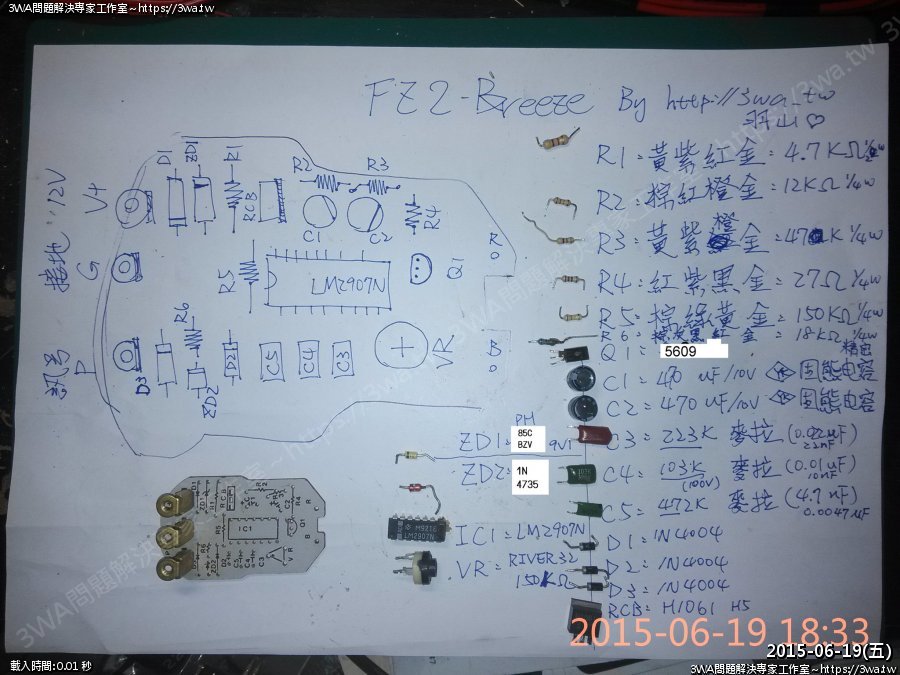 3WA問題解決專家工作室~https://3wa.tw
3WA問題解決專家工作室~https://3wa.tw
FZ2-Breeze By http://3wa.tw
羽山♡
R1:黃紫紅金:4.7KΩ¼w
R2:棕紅橙金:12KΩ¼w
R3:黃紫橙金:47K¼w
R4:紅紫黑金:27Ω¼w
R5:棕綠黃金:150KΩ¼w
R6:棕灰黑紅 18KΩ¼w
精密
Q1: 5609
C1:470uF/10V 固態电容
C2:470uF/10V 固態电容
C3:223K 麥拉(0.022uF)
22nF
C4:103K 麥拉(0.01uF)
(100V) 10nF
C5:472K 麥拉(4.7nF)
0.0047uF
D1:1N4004
D2:1N4004
D3:1N4004
RCB:H1061 H5
ZD1: PH 85C BZV 9V1
ZD2: 1N 4735
IC1:LM2907N
VR:RIVER32
150KΩ
12V
V+
接地
G
訊号
P
D1
ZD1
R1
RCB
R2
R3
C1
C2
R4
R
R5
LM2907N
Q1
R6
D3
ZD2
D2
C5
C4
C3
VR
B
M921
LM2907N
IC1
2015-06-19 18:33
載入時間:0.01 秒
2015-06-19(五)
3WA問題解決專家工作室~https://3wa.tw